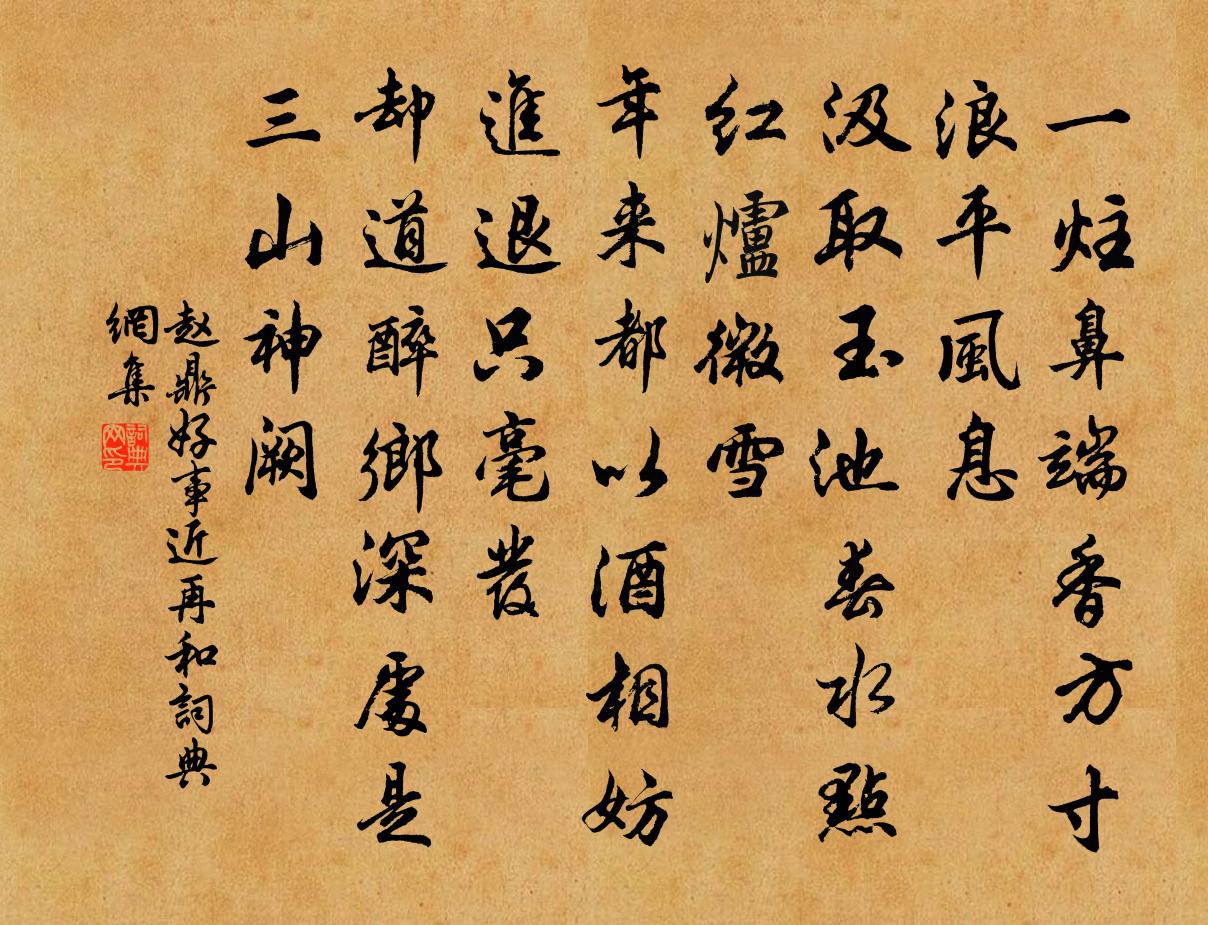 一炷鼻端香方寸
浪平風息
汲取玉池春水點
紅爐微雪
年来都以酒相妨
進退只毫發
却道醉鄉深處是
三山神闕
赵鼎好事近再和詞典
網集
詞典
网印